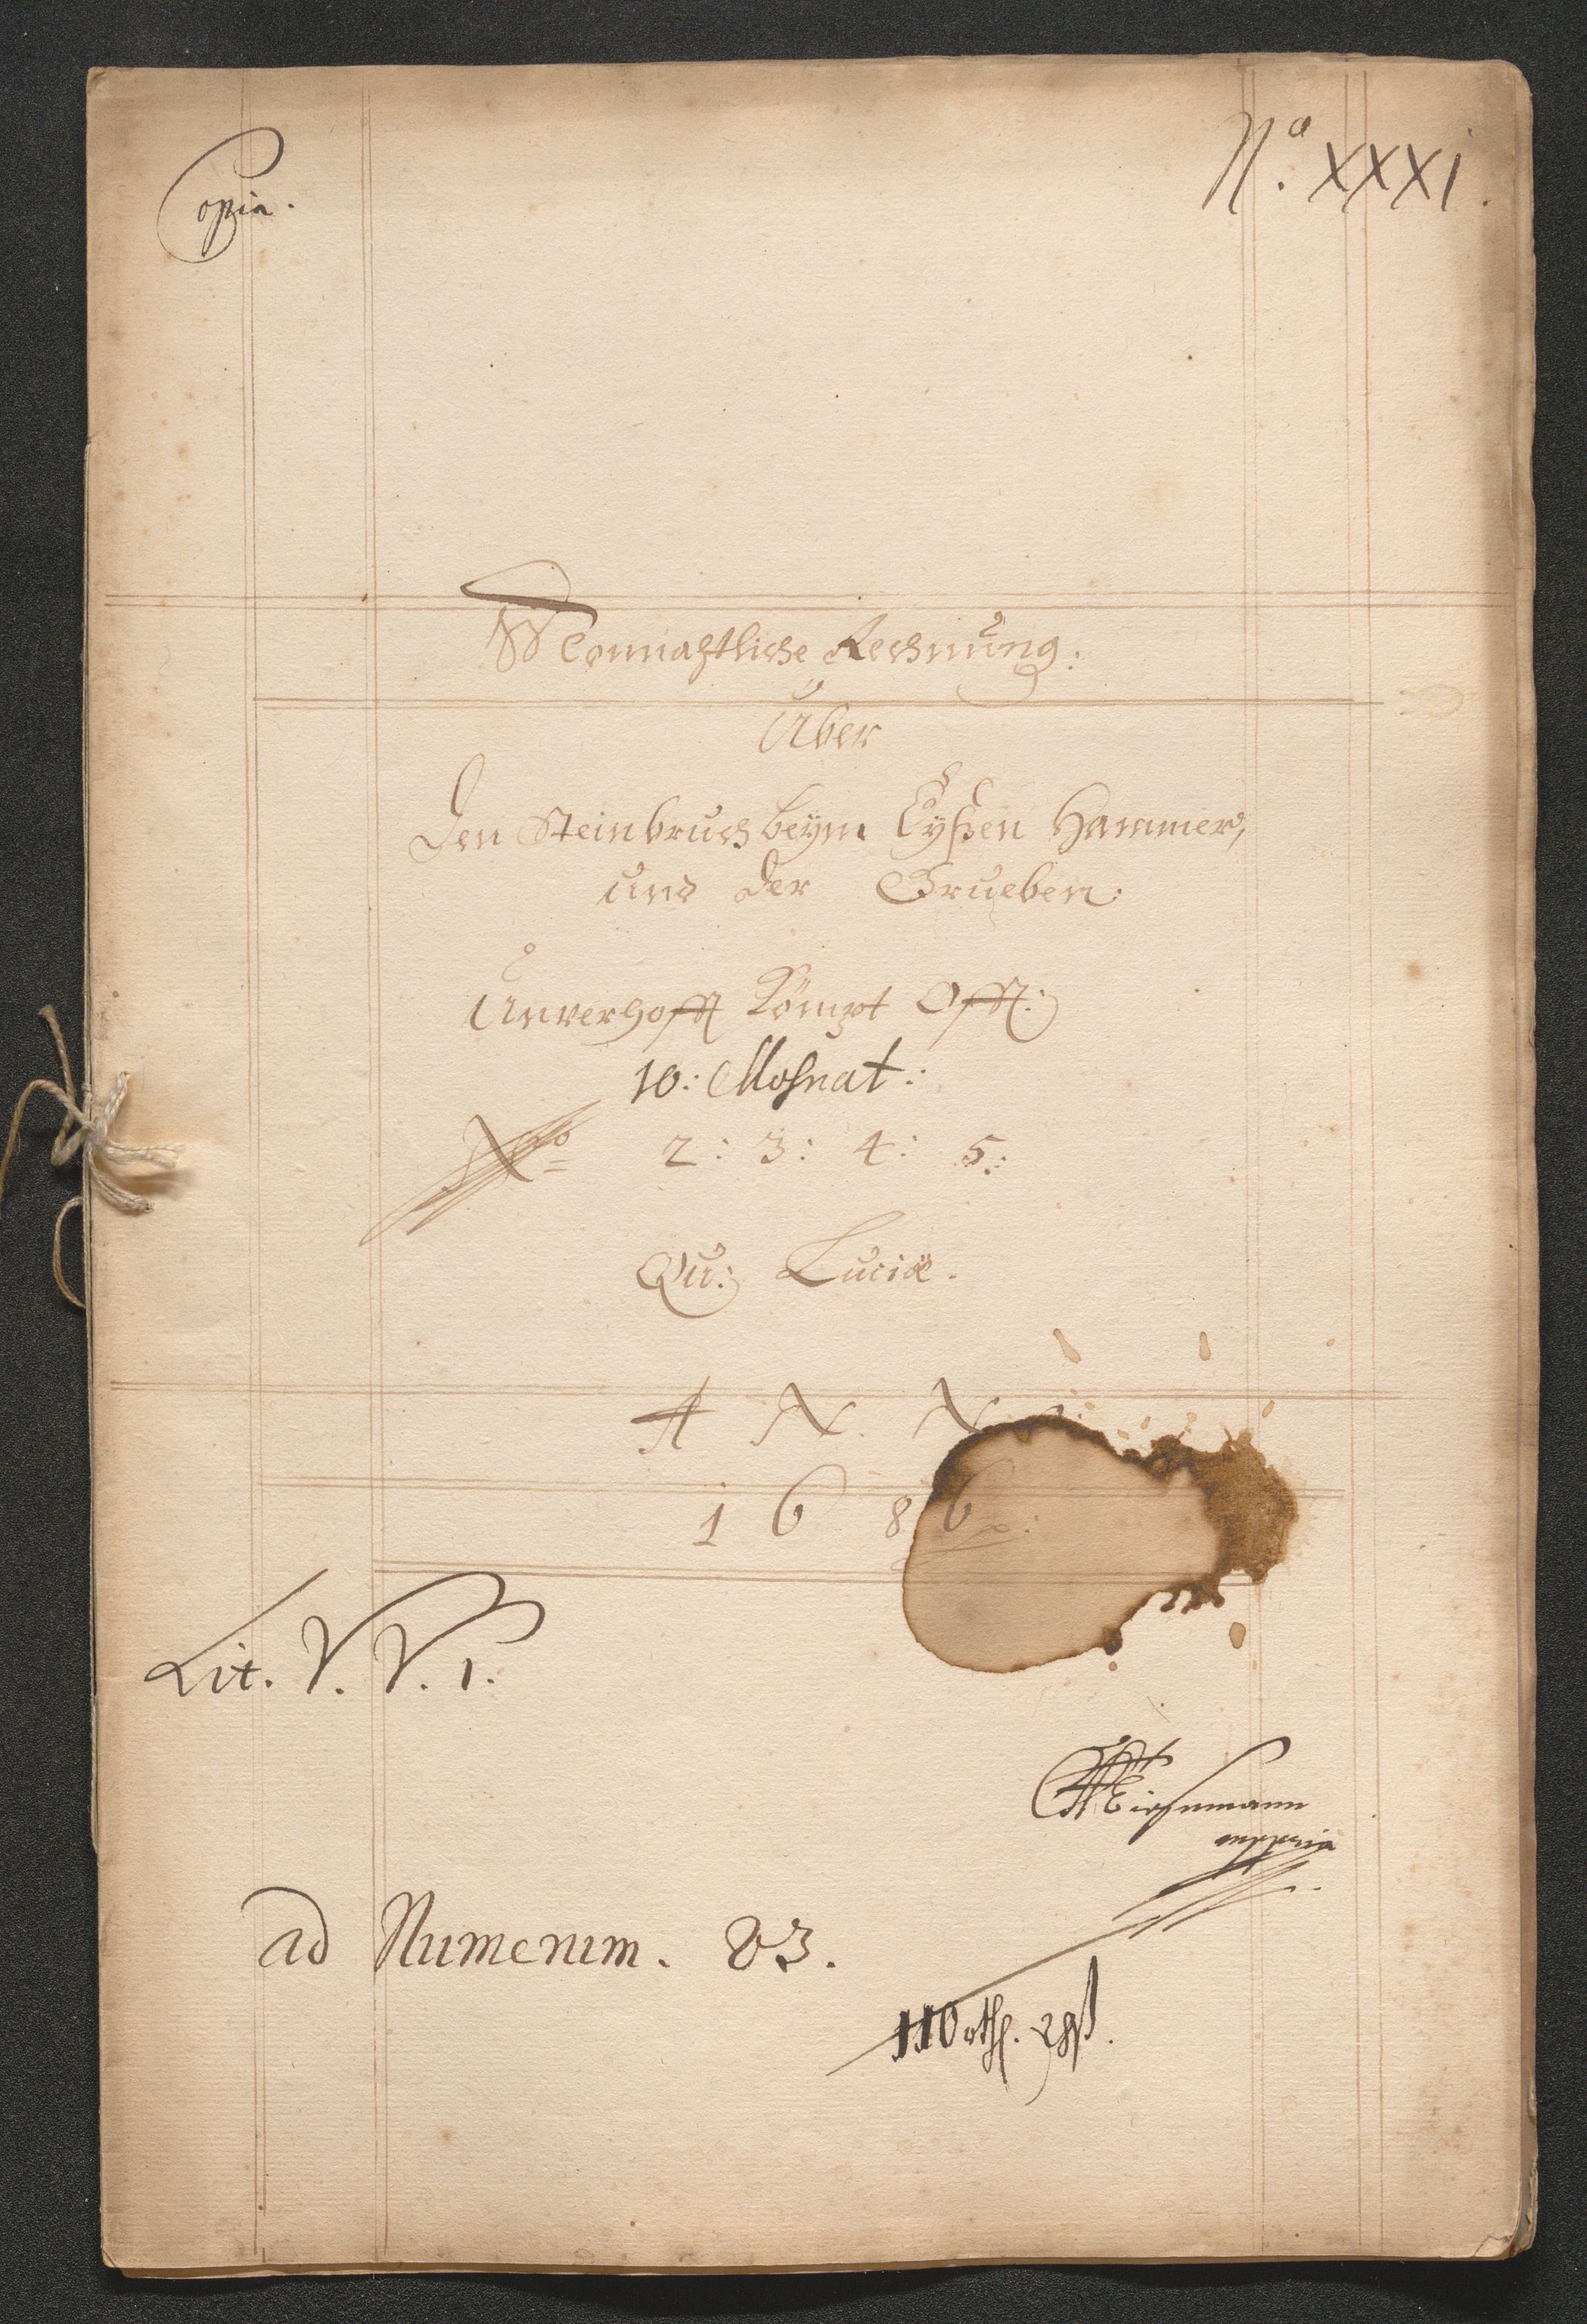 Copia.
No. XXXI.
Monnahtliche Rechnung:
Über
Den Steinbruch beÿm Eÿßen Hammer,
und der Grueben:
Unverhofft Kömpt Offt:
10: Mohnat:
No 2: 3: 4: 5:
Qu: Luciæ.
A N N
1 6 8 6
Lit. V. V. 1.
mppria
ad Numerum. 83.
110 rth.